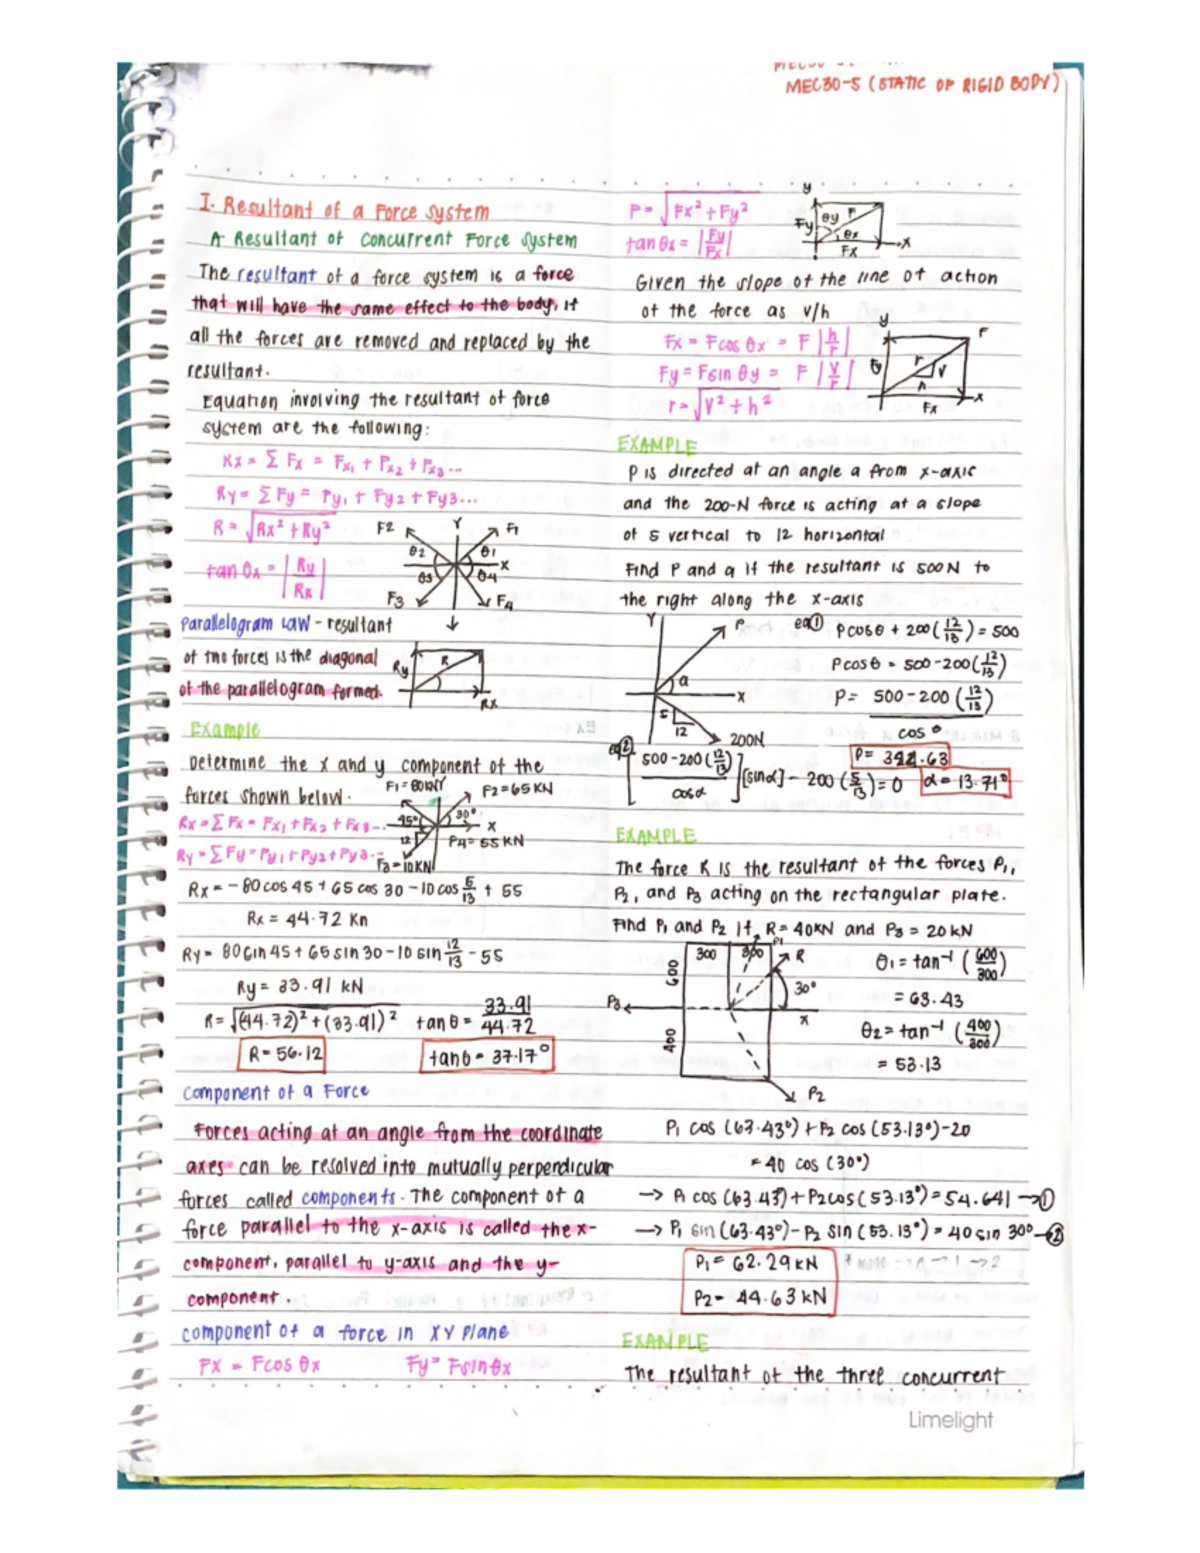 MEC30-5 (STATIC OF RIGID BODY)
I. Resultant of a Force System
A. Resultant of Concurrent Force System
The resultant of a force system is a force
that will have the same effect to the body, if
all the forces are removed and replaced by the
resultant.
Equation involving the resultant of force
system are the following:
Rx = Σ Fx = Fx1 + Fx2 + Fx3...
Ry = Σ Fy = Fy1 + Fy2 + Fy3...
R = √Rx² + Ry²
tan θx = |Ry/Rx|
F2 Y F1
θ2 θ1 X
θ3 θ4
F3 F4
Parallelogram Law - resultant
of two forces is the diagonal
of the parallelogram formed.
Ry R Rx
Example
Determine the x and y component of the
forces shown below.
F1=80KN Y F2=65KN
45° 30° X
12 P4=55KN
F3=10KN
Rx=ΣFx=Fx1+Fx2+Fx3...
Ry=ΣFy=Fy1+Fy2+Fy3...
Rx = -80cos45 + 65cos30 - 10cos 5/13 + 55
Rx = 44.72 Kn
Ry = 80sin45 + 65sin30 - 10sin 12/13 - 55
Ry = 33.91 kN
R = √(44.72)² + (33.91)² tanθ = 33.91/44.72
R = 56.12 tanθ = 37.17°
Component of a Force
Forces acting at an angle from the coordinate
axes can be resolved into mutually perpendicular
forces called components. The component of a
force parallel to the x-axis is called the x-
component, parallel to y-axis and the y-
component.
component of a force in XY plane
Fx = Fcos θx Fy = Fsinθx
F = √Fx² + Fy²
tan θx = |Fy/Fx|
y Fy θy F θx Fx x
Given the slope of the line of action
of the force as v/h
Fx = Fcos θx = F |h/r|
Fy = Fsin θy = F |v/r|
r = √v² + h²
y F Fy r v h Fx x
EXAMPLE
P is directed at an angle a from x-axis
and the 200-N force is acting at a slope
of 5 vertical to 12 horizontal
Find P and a if the resultant is 500N to
the right along the x-axis
Y P a X 5 12 200N
eq① Pcosθ + 200(12/13) = 500
Pcosθ = 500-200(12/13)
P = 500-200(12/13) / cosθ
eq② [500-200(12/13) / cosα][sinα] - 200(5/13) = 0
α = 13.71°
EXAMPLE
The force R is the resultant of the forces P1,
P2, and P3 acting on the rectangular plate.
Find P1 and P2 if R = 40KN and P3 = 20KN
300 300 P1 R
600 30°
P3 X
400
P2
θ1 = tan⁻¹ (600/300)
= 63.43
θ2 = tan⁻¹ (400/300)
= 53.13
P1 cos (63.43°) + P2 cos (53.13°) - 20
= 40 cos (30°)
→ P1 cos (63.43°) + P2 cos (53.13°) = 54.641 → ①
→ P1 sin (63.43°) - P2 sin (53.13°) = 40 sin 30° → ②
P1 = 62.29 kN
P2 = 44.63 kN
EXAMPLE
The resultant of the three concurrent
Limelight